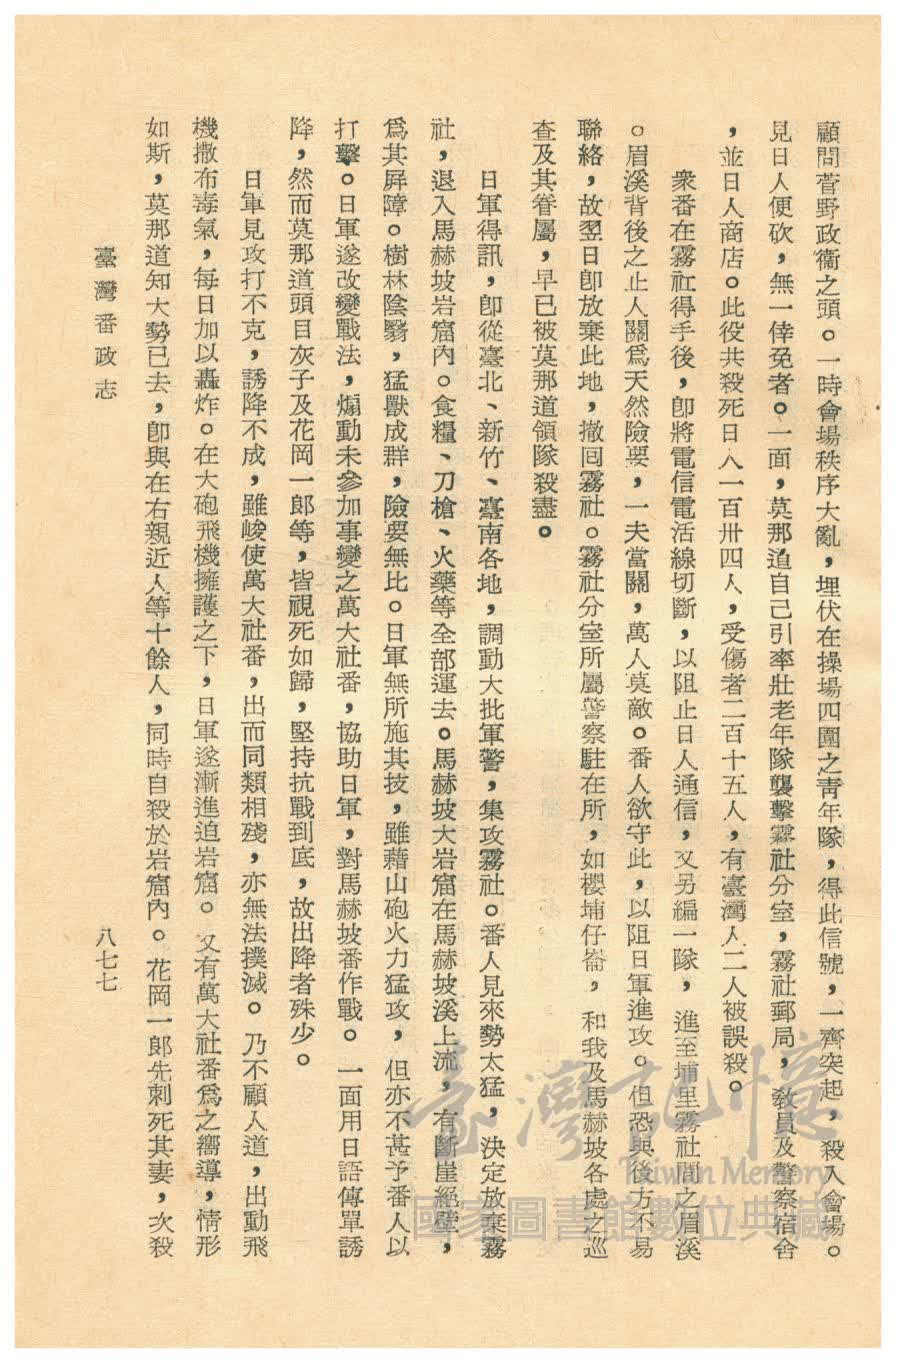 顧問菅野政衞之頭。一時會場秩序大亂，埋伏在操場四圍之靑年隊，得此信號，一齊突起，殺入會場。
見日人便砍，無一倖免者。一面，莫那道自己引率壯老年隊襲擊霧社分室，霧社郵局，敎員及警察宿舍
，並日人商店。此役共殺死日人一百卅四人，受傷者二百十五人，有臺灣人二人被誤殺。
衆番在霧社得手後，卽將電信電活線切斷，以阻止日人通信，又另編一隊，進至埔里霧社間之眉溪
。眉溪背後之止人關爲天然險要，一夫當關，萬人莫敵。番人欲守此，以阻日軍進攻。但恐與後方不易
聯絡，故翌日卽放棄此地，撤回霧社。霧社分室所屬警察駐在所，如櫻埔仔崙，和我及馬赫坡各處之巡
查及其眷屬，早已被莫那道領隊殺盡。
日軍得訊，卽從臺北、新竹、臺南各地，調動大批軍警，集攻霧社。番人見來勢太猛，決定放棄霧
社，退入馬赫坡岩窟內。食糧、刀槍、火藥等全部運去。馬赫坡大岩窟在馬赫坡溪上流，有斷崖絕壁，
爲其屛障。樹林陰翳，猛獸成群，險要無比。日軍無所施其技，雖藉山砲火力猛攻，但亦不甚予番人以
打擊。日軍遂改變戰法，煽動未參加事變之萬大社番，協助日軍，對馬赫坡番作戰。一面用日語傳單誘
降，然而莫那道頭目灰子及花岡一郎等，皆視死如歸，堅持抗戰到底，故出降者殊少。
日軍見攻打不克，誘降不成，雖峻使萬大社番，出而同類相殘，亦無法撲滅。乃不顧人道，出動飛
機撒布毒氣，每日加以轟炸。在大砲飛機擁護之下，日軍遂漸進迫岩窟。又有萬大社番爲之嚮導，情形
如斯，莫那道知大勢已去，卽與在右親近人等十餘人，同時自殺於岩窟內。花岡一郎先刺死其妻，次殺
臺灣番政志
八七七
臺灣記憶
Taiwan Memory
國家圖書館數位典藏